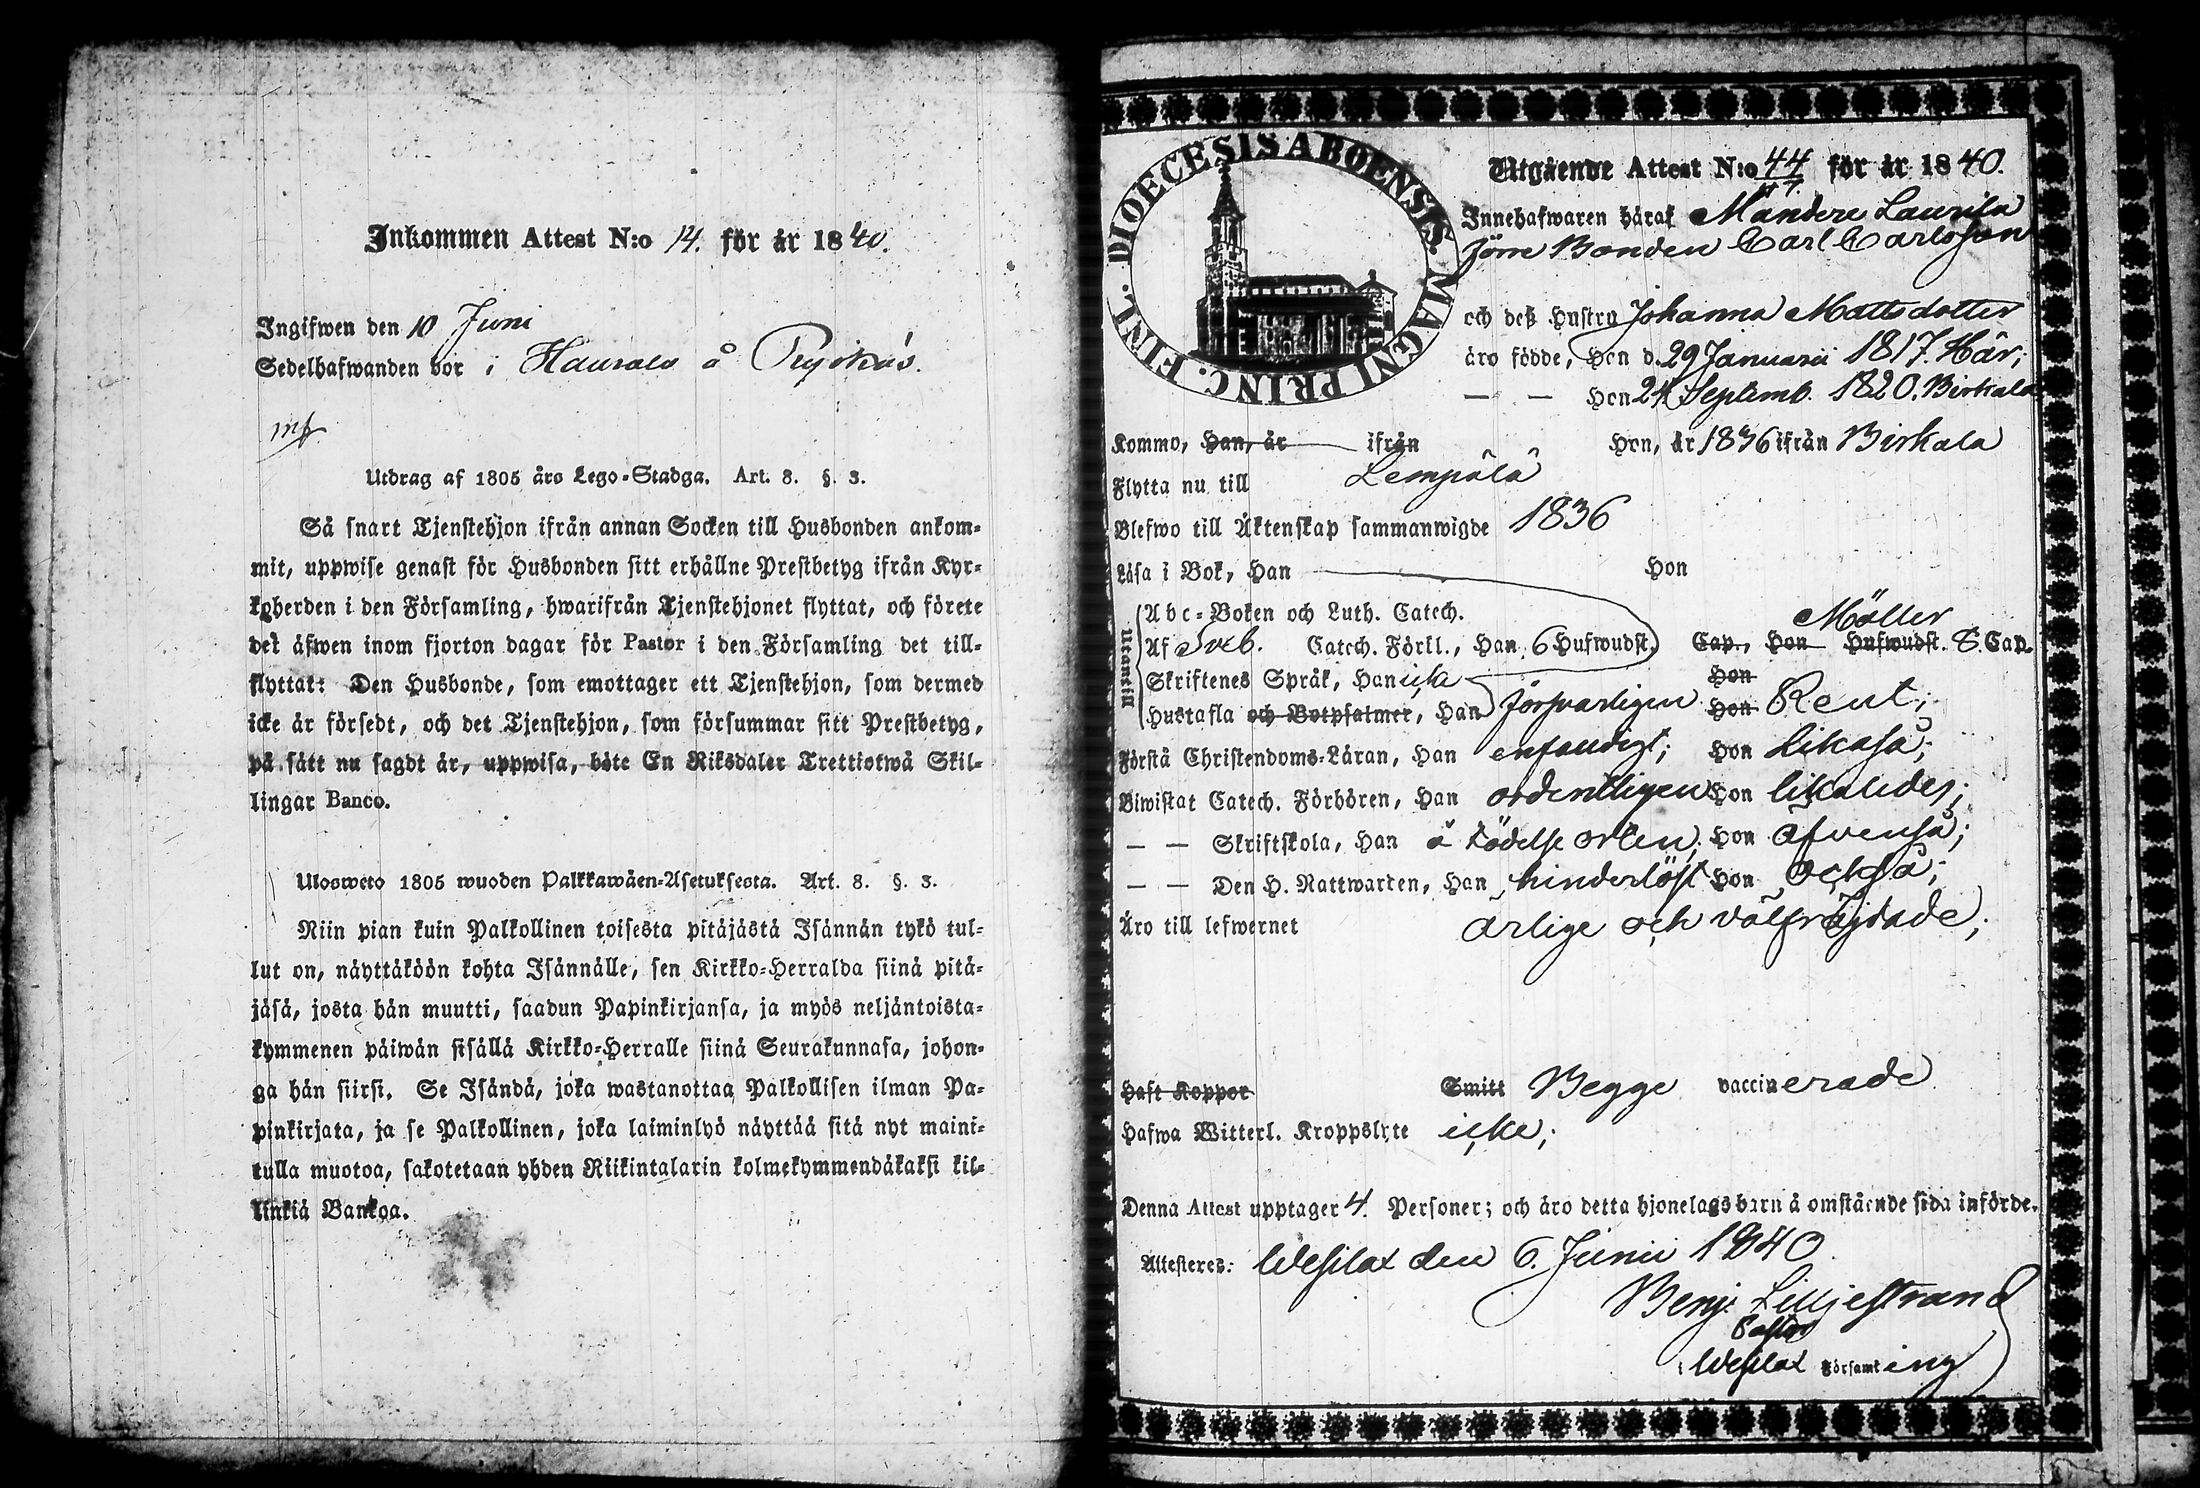 Inkommen Attest N:o 14. för år 1840.
Ingifwen den 10 Juni
Sedelhafwanden bor i Haurala å
Utdrag af 1805 års Lego-Stadga. Art. 8. §. 3.
Så snart Tjenstehjon ifrån annan Socken till Husbonden ankom-
mit, uppwise genast för Husbonden sitt erhållne Prestbetyg ifrån Kyr-
koherden i den Församling, hwarifrån Tjenstehjonet flyttat, och förete
det äfwen inom fjorton dagar för Pastor i den Församling det till-
flyttat: Den Husbonde, som emottager ett Tjenstehjon, som dermed
icke är försedt, och det Tjenstehjon, som försummar sitt Prestbetyg,
på sätt nu sagdt är, uppwisa, böte En Riksdaler Trettiotwå Skil-
lingar Banco.
Ulosweto 1805 wuoden Palkkawäen-Asetuksesta. Art. 8. §. 3.
Niin pian kuin Palkollinen toisesta pitäjästä Isännän tykö tul-
lut on, näyttäköön kohta Isännälle, sen Kirkko-Herralda siinä pitä-
jäsä, josta hän muutti, saadun Papinkirjansa, ja myös neljäntoista-
kymmenen päiwän sisällä Kirkko-Herralle siinä Seurakunnasa, johon-
ga hän siirsi. Se Isändä, joka wastanottaa Palkollisen ilman Pa-
pinkirjata, ja se Palkollinen, joka laiminlyö näyttää sitä nyt maini-
tulla muotoa, sakotetaan yhden Riikintalarin kolmekymmendäkaksi kil-
linkiä Bankoa.
FINL. DIOECESIS ABOENSIS. MAGNI PRINC.
Utgående Attest N:o 44 för år 1840.
Innehafwaren häraf Mandere Laurila
förre Bonden Carl Carlsson
och deß Hustru Johanna Mattsdotter
äro födde, Han d. 29 Januarii 1817. Här;
— — Hon 24 Septemb. 1820. Birkala
Kommo, Han, år ifrån Hon, år 1836 ifrån Birkala
Flytta nu till Lempälä
Blefwo till Äktenskap sammanwigde 1836
Läsa i Bok, Han Hon
Utanefill
Abc-Boken och Luth. Catech. Möller
Af Sveb. Catech. Förkl., Han 6 Hufwudst. Cap., Hon Hufwudst. 8 Cap.
Skriftenes Språk, Han icke Hon
Hustafla och Botpsalmer, Han försvarligen Hon Rent;
Förstå Christendoms-Läran, Han enfaldigt; Hon likaså;
Biwistat Catech. Förhören, Han ordentligen Hon likaledes;
— — Skriftskola, Han å födelse orten; Hon äfvenså;
— — Den H. Nattwarden, Han hinderlöst Hon också;
Äro till lefwernet ärlige och välfrejdade;
Haft Koppor Smitt Begge vaccinerade
Hafwa Witterl. Kroppslyte icke;
Denna Attest upptager 4. Personer; och äro detta hjonelags barn å omstående sida införde.
Attesteres: Wesilax den 6. Junii 1840
Benj. Liljestrand
Pastor
i Wesilax Församling